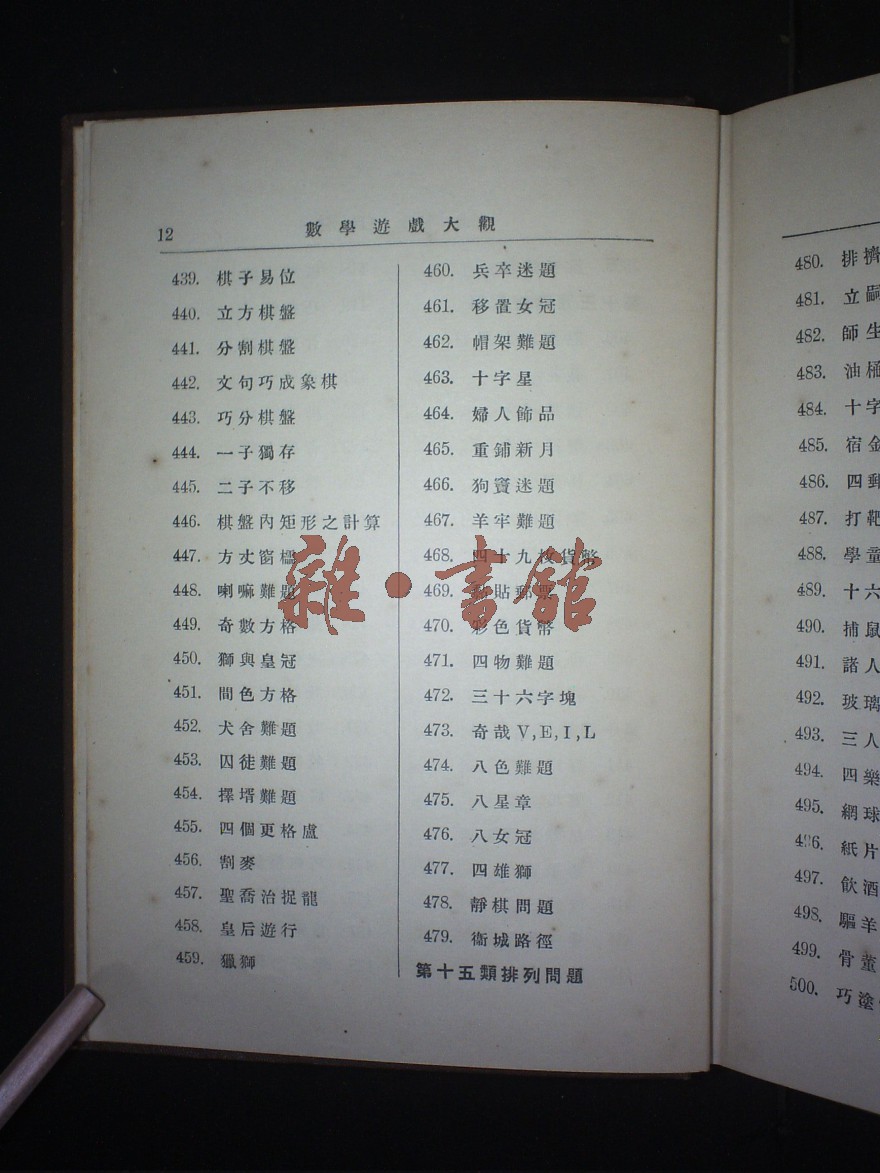 12
數學遊戲大觀
439. 棋子易位
440. 立方棋盤
441. 分割棋盤
442. 文句巧成象棋
443. 巧分棋盤
444. 一子獨存
445. 二子不移
446. 棋盤內矩形之計算
447. 方丈窗櫺
448. 喇嘛難題
449. 奇數方格
450. 獅與皇冠
451. 間色方格
452. 犬舍難題
453. 囚徒難題
454. 擇壻難題
455. 四個更格盧
456. 割麥
457. 聖喬治捉龍
458. 皇后遊行
459. 獵獅
460. 兵卒迷題
461. 移置女冠
462. 帽架難題
463. 十字星
464. 婦人飾品
465. 重鋪新月
466. 狗竇迷題
467. 羊牢難題
468. 四十九枚貨幣
469. 黏貼郵票
470. 彩色貨幣
471. 四物難題
472. 三十六字塊
473. 奇哉V,E,I,L
474. 八色難題
475. 八星章
476. 八女冠
477. 四雄獅
478. 靜棋問題
479. 衞城路徑
第十五類排列問題
480. 排擠
481. 立嗣
482. 師生
483. 油桶
484. 十字
485. 宿金
486. 四郵
487. 打靶
488. 學童
489. 十六
490. 捕鼠
491. 諸人
492. 玻璃
493. 三人
494. 四樂
495. 網球
496. 紙片
497. 飲酒
498. 驅羊
499. 骨董
500. 巧塗
雜·書館